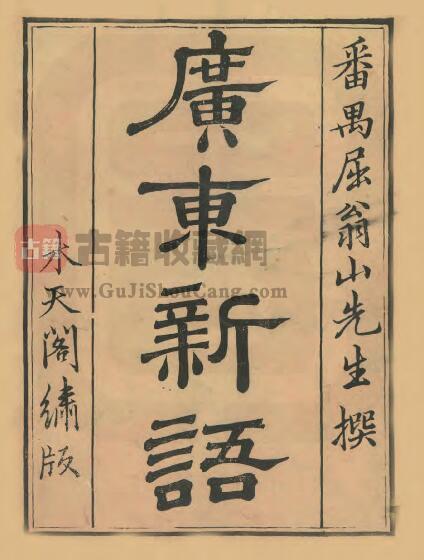 番禺屈翁山先生撰
廣東新語
木天閣繡版
古籍
古籍收藏網
www.GuJiShouCang.com